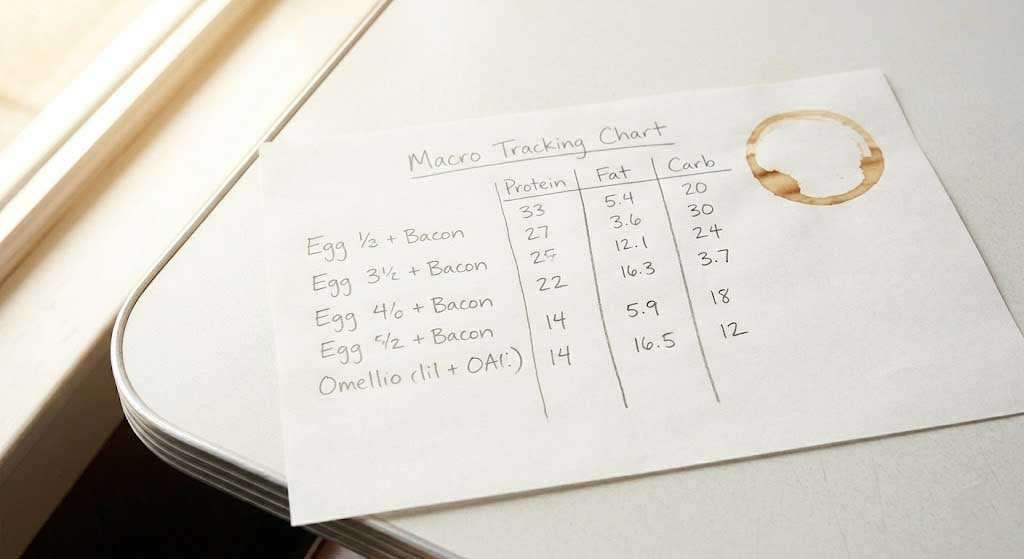 Macro Tracking Chart
Protein Fat Carb
33 5.4 20
Egg ½ + Bacon 27 3.6 30
Egg 3½ + Bacon 25 12.1 24
Egg 4/0 + Bacon 22 16.3 3.7
Egg 5/2 + Bacon 14 5.9 18
Omellio 14 16.5 12